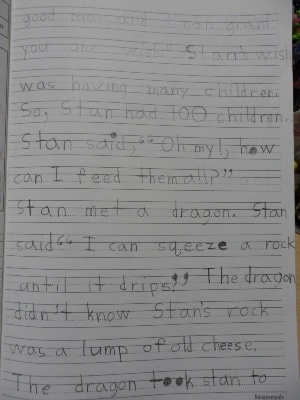 good man, said I can grant
you one wish." Stan's wish
was having many children.
So, Stan had 100 children.
Stan said, "Oh my!, how
can I feed them all?"
Stan met a dragon. Stan
said "I can sqeeze a rock
until it drips?" The dragon
didn't know Stan's rock
was a lump of old cheese.
The dragon took stan to